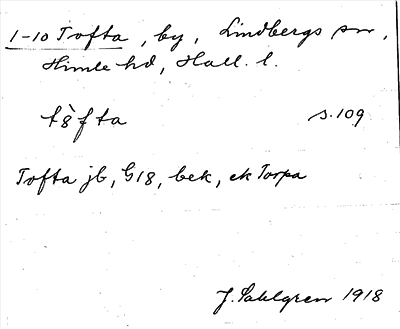 1-10 Tofta, by, Lindbergs sn,
Himle hd, Hall. l.
tòfta s. 109
Tofta jb, G18, bek, ek Torpa
J. Sahlgren 1918